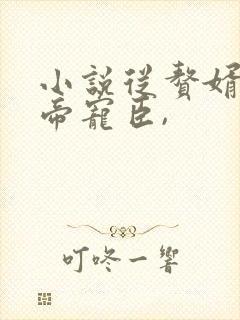 小說從贅婿
帝寵臣,
叮咚一響